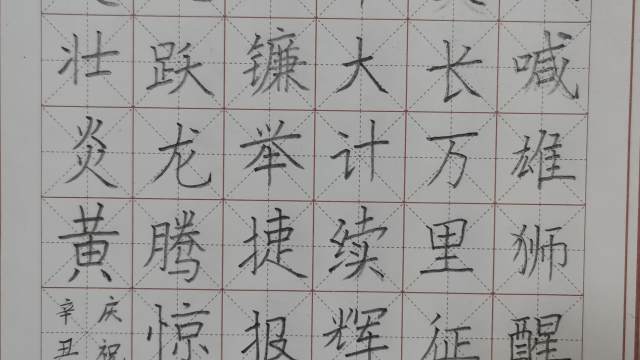 喊雄狮醒
长万里征
大计续辉
镰举捷报
跃龙腾惊
壮炎黄
庆祝
辛丑